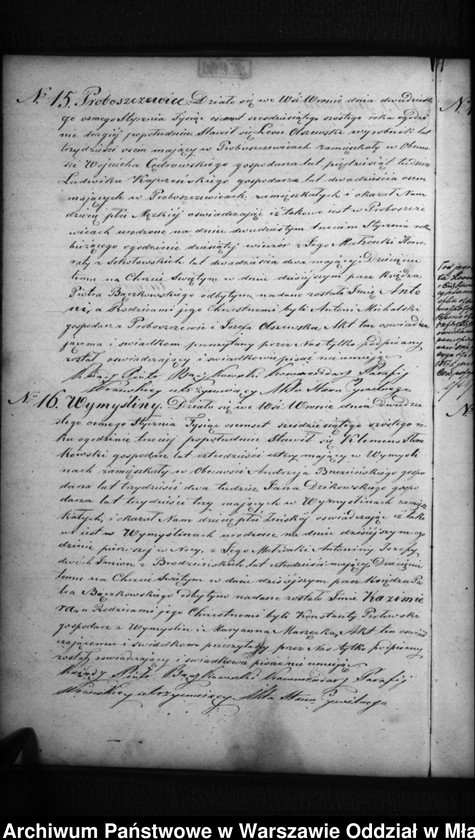 № 15. Proboszczewice. Działo się we Wsi Wronie dnia dwudzieste
go ósmego Stycznia Tysiąc ośmset sześćdziesiątego szóstego roku o godzi
nie drugiej popołudniu. Stawił się Leon Olszewski wyrobnik lat
trzydzieści ośm mający w Proboszczewicach zamieszkały w Obecno
ści Wojciecha gospodarza lat pięćdziesiąt tudzież
Ludwika gospodarza lat dwadzieścia ośm
mających w Proboszczewicach zamieszkałych i okazał Nam
dziecię płci Męzkiej oświadczając iż takowe jest w Proboszcze
wicach urodzone na dniu dwudziestym trzecim Stycznia roku
bieżącego o godzinie dziesiątej wieczór z Jego Małżonki Hono
raty z Sokołowskich lat dwadzieścia dwa mającej. Dziecięciu
temu na Chrzcie Świętym w dniu dzisiejszym przez Księdza
Piotra Bączkowskiego odbytym nadane zostało Imię Anto
ni, a Rodzicami jego Chrzestnemi byli Antoni Michalski
gospodarz z Proboszczewic i Józefa Olszewska. Akt ten oświadcza
jącemu i świadkom przeczytany przez Nas tylko podpisany
został, oświadczający i świadkowie pisać nie umieją.
Xiądz Piotr Bączkowski Kommendarz Parafji
Wroneckiej utrzymujący Akta Stanu Cywilnego
№ 16. Wymyśliny. Działo się we Wsi Wronie dnia Dwudzie
stego ósmego Stycznia Tysiąc ośmset sześćdziesiątego szóstego ro
ku o godzinie trzeciej popołudniu Stawił się Klemens
kowski gospodarz lat czterdzieści cztery mający w Wymyśli
nach zamieszkały w Obecności Andrzeja Brzezińskiego gospo
darza lat trzydzieści dwa tudzież Jana gospo
darza lat trzydzieści trzy mających w Wymyślinach zamiesz
kałych, i okazał Nam dziecię płci żeńskiej oświadczając iż tako
we jest w Wymyślinach urodzone na dniu dzisiejszym o go
dzinie pierwszej w Nocy, z Jego Małżonki Antoniny Józefy
dwóch Imion z Brodzińskich lat czterdzieści mającej. Dziecięciu
temu na Chrzcie Świętym w dniu dzisiejszym przez Księdza Pio
tra Bączkowskiego odbytym nadane zostało Imię Kazimie
ra, a Rodzicami jego Chrzestnemi byli Konstanty
gospodarz z Wymyślin i Maryanna Akt ten oświad
czającemu i świadkom przeczytany przez Nas tylko podpisany
został, oświadczający i świadkowie pisać nie umieją
Xiądz Piotr Bączkowski Kommendarz Parafji
Wroneckiej utrzymujący Akta Stanu Cywilnego
Archiwum Państwowe w Warszawie Oddział w Mła